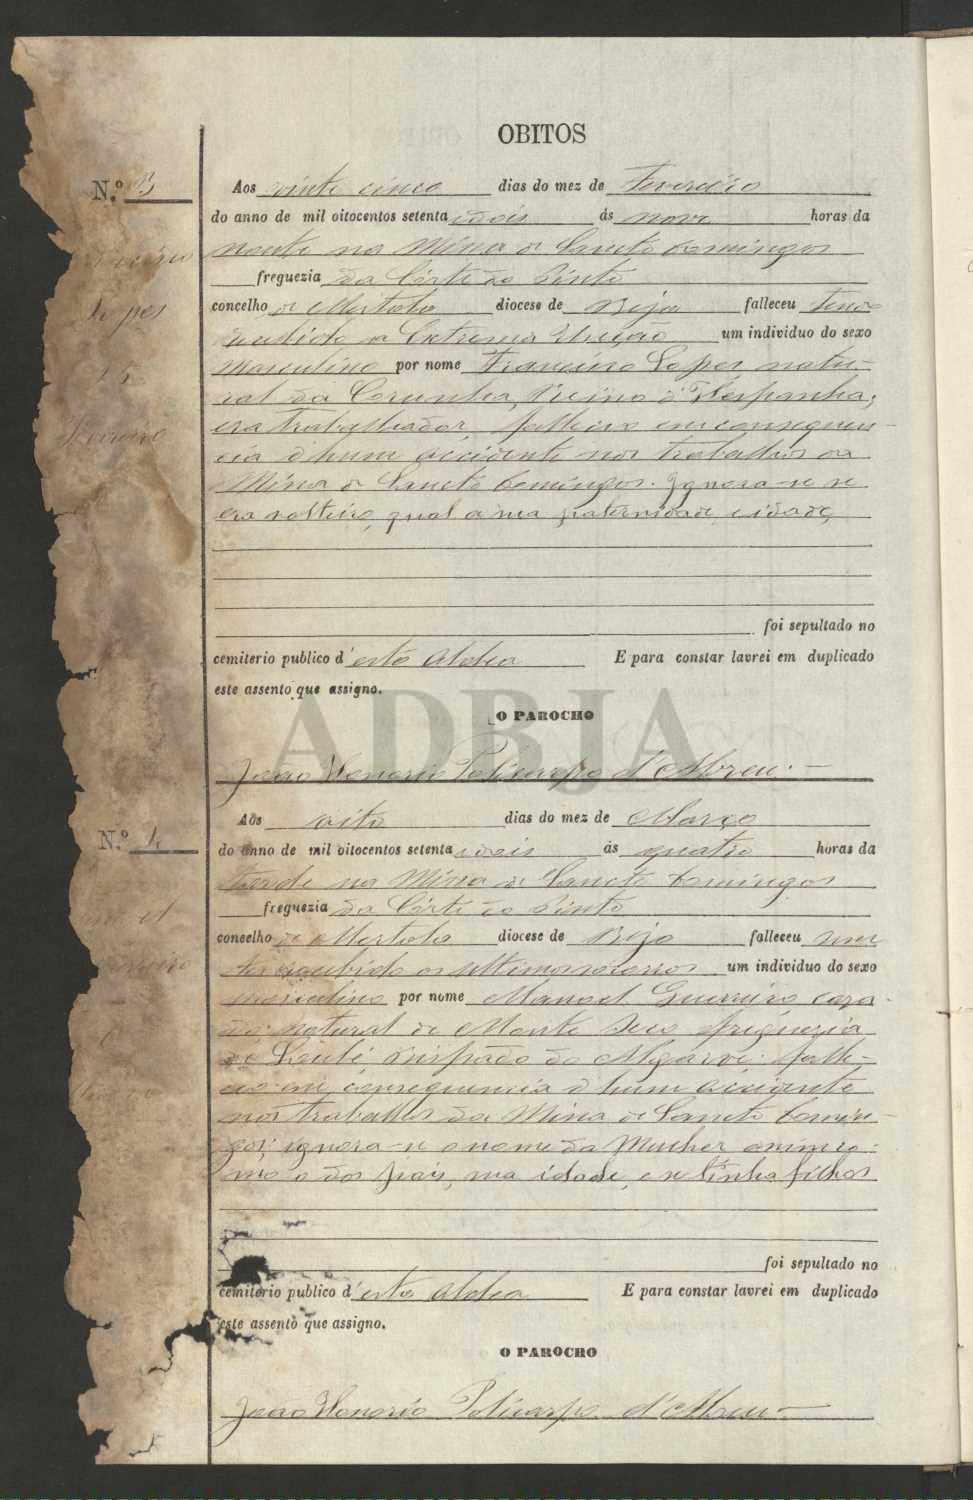 OBITOS
N.º 3
Aos vinte cinco dias do mez de Fevereiro
do anno de mil oitocentos setenta e dois ás nove horas da
noute na Mina de Sancto Domingos
freguezia da Côrte do Pinto
concelho de Mertola diocese de Beja falleceu tendo
recebido a Extrema Uncção um individuo do sexo
masculino por nome Francisco Lopes natu-
ral da Corunha, Reino d'Hespanha,
era trabalhador, falleceo em consequen-
cia d'hum accidente nos trabalhos da
Mina de Sancto Domingos. Ignora-se se
era solteiro, qual a sua paternidade, e idade,
Lopes
foi sepultado no
cemiterio publico d'esta Aldea E para constar lavrei em duplicado
este assento que assigno.
O PAROCHO
ADBJA
João Honorio Policarpo d'Abreu.
N.º 4
Aos oito dias do mez de Março
do anno de mil oitocentos setenta e dois ás quatro horas da
tarde na Mina de Sancto Domingos
freguezia da Côrte do Pinto
concelho de Mertola diocese de Beja falleceu sem
ter recebido os ultimos socorros um individuo do sexo
masculino por nome Manoel Guerreiro casa-
do natural de Monte Seco freguezia
de Loulé Bispado do Algarve: falle-
ceo em consequencia d'hum accidente
nos trabalhos da Mina de Sancto Domin-
gos; ignora-se o nome da Mulher o mes-
mo o dos pais, sua idade, e se tinha filhos
foi sepultado no
cemiterio publico d'esta Aldea E para constar lavrei em duplicado
este assento que assigno.
O PAROCHO
João Honorio Policarpo d'Abreu